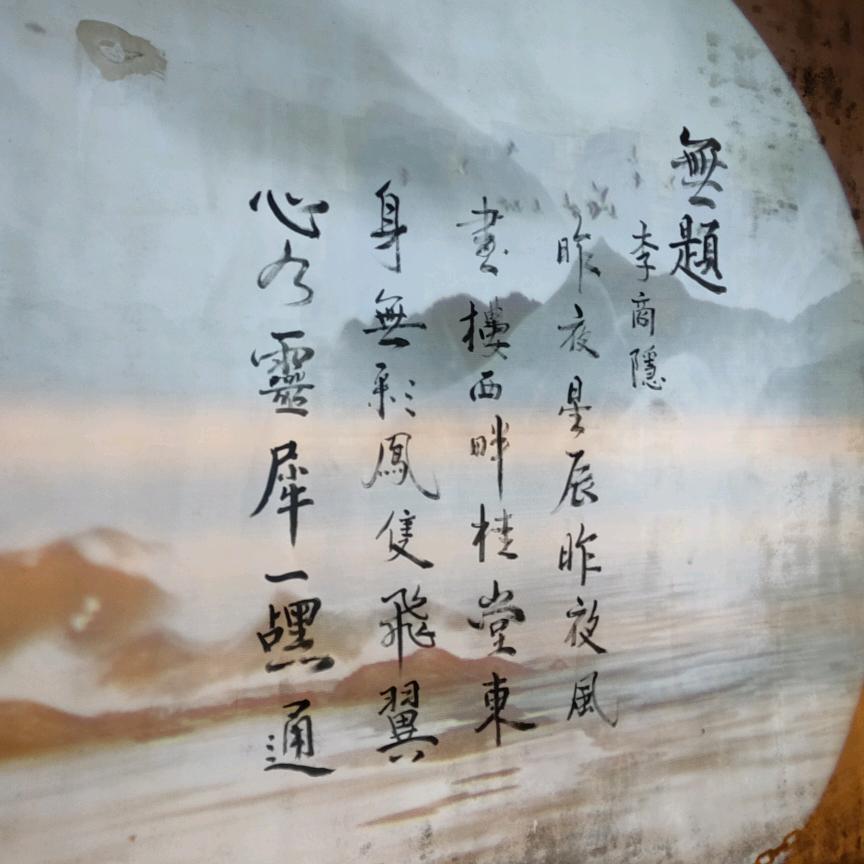 無題
李商隱
昨夜星辰昨夜風
畫樓西畔桂堂東
身無彩鳳隻飛翼
心有靈犀一點通